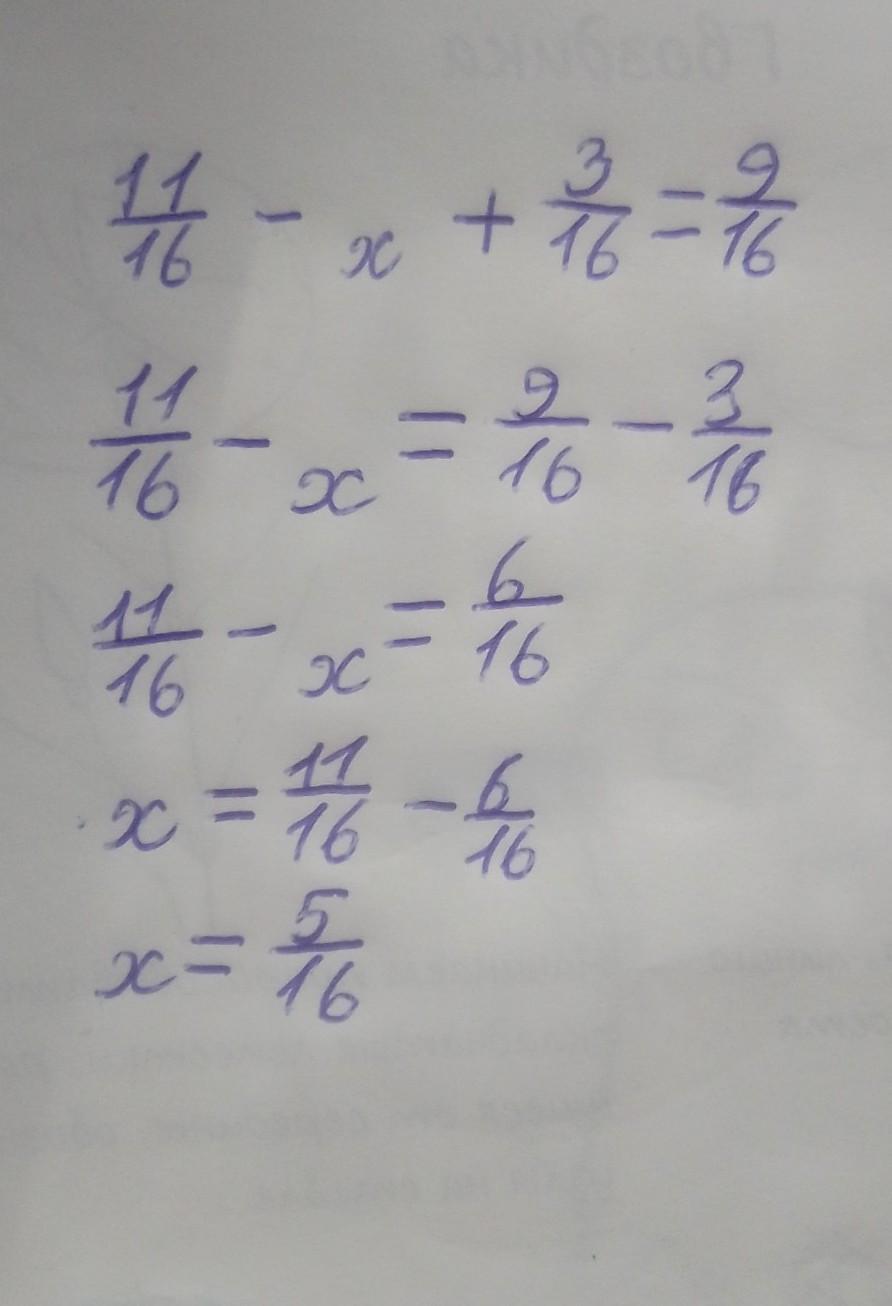 Гвоздика
11/16 - x + 3/16 = 9/16
11/16 - x = 9/16 - 3/16
11/16 - x = 6/16
x = 11/16 - 6/16
x = 5/16